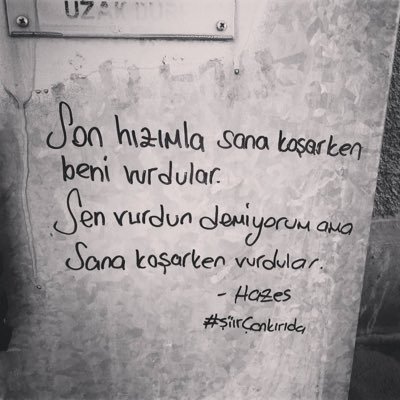 UZAK DUR
Son hızımla sana koşarken
beni vurdular.
Sen vurdun demiyorum ama
Sana koşarken vurdular.
- Hazes
#şiirÇankırıda